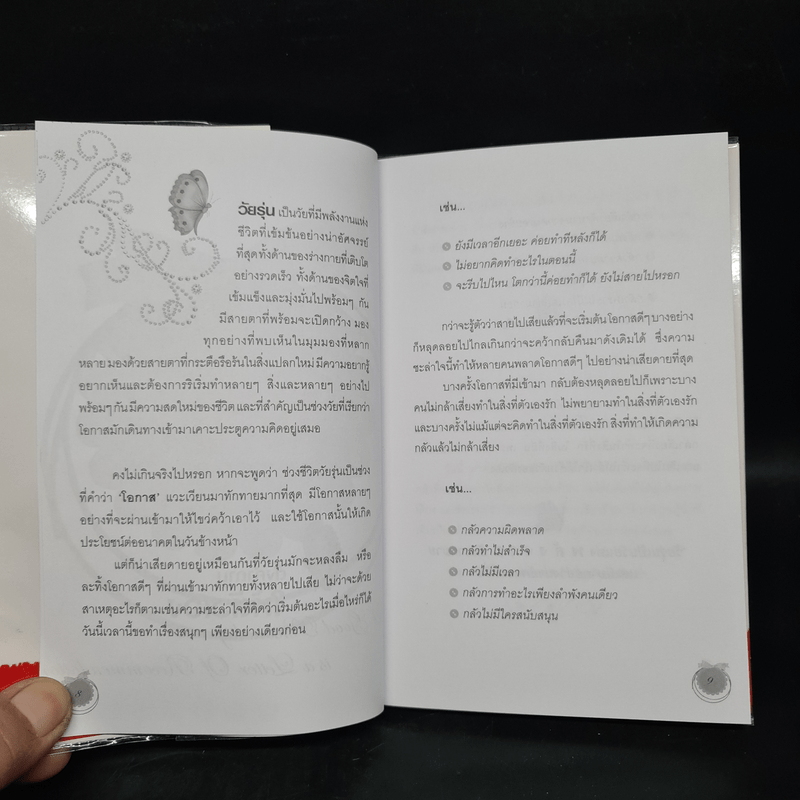 วัยรุ่น เป็นวัยที่มีพลังงานแห่ง
ชีวิตที่เข้มข้นอย่างน่าอัศจรรย์
ที่สุดทั้งด้านของร่างกายที่เติบโต
อย่างรวดเร็ว ทั้งด้านของจิตใจที่
เข้มแข็งและมุ่งมั่นไปพร้อมๆ กัน
มีสายตาที่พร้อมจะเปิดกว้าง มอง
ทุกอย่างที่พบเห็นในมุมมองที่หลาก
หลาย มองด้วยสายตาที่กระตือรือร้นในสิ่งแปลกใหม่ มีความอยากรู้
อยากเห็นและต้องการริเริ่มทำหลายๆ สิ่งและหลายๆ อย่างไป
พร้อมๆ กัน มีความสดใหม่ของชีวิต และที่สำคัญเป็นช่วงวัยที่เรียกว่า
โอกาสมักเดินทางเข้ามาเคาะประตูความคิดอยู่เสมอ
คงไม่เกินจริงไปหรอก หากจะพูดว่า ช่วงชีวิตวัยรุ่นเป็นช่วง
ที่คำว่า 'โอกาส' แวะเวียนมาทักทายมากที่สุด มีโอกาสหลายๆ
อย่างที่จะผ่านเข้ามาให้ไขว่คว้าเอาไว้ และใช้โอกาสนั้นให้เกิด
ประโยชน์ต่ออนาคตในวันข้างหน้า
แต่ก็น่าเสียดายอยู่เหมือนกันที่วัยรุ่นมักจะหลงลืม หรือ
ละทิ้งโอกาสดีๆ ที่ผ่านเข้ามาทักทายทั้งหลายไปเสีย ไม่ว่าจะด้วย
สาเหตุอะไรก็ตามเช่นความชะล่าใจที่คิดว่าเริ่มต้นอะไรเมื่อไหร่ก็ได้
วันนี้เวลานี้ขอทำเรื่องสนุกๆ เพียงอย่างเดียวก่อน
8
เช่น...
ยังมีเวลาอีกเยอะ ค่อยทำทีหลังก็ได้
ไม่อยากคิดทำอะไรในตอนนี้
จะรีบไปไหน โตกว่านี้ค่อยทำก็ได้ ยังไม่สายไปหรอก
กว่าจะรู้ตัวว่าสายไปเสียแล้วที่จะเริ่มต้นโอกาสดีๆ บางอย่าง
ก็หลุดลอยไปไกลเกินกว่าจะคว้ากลับคืนมาดังเดิมได้ ซึ่งความ
ชะล่าใจนี้ทำให้หลายคนพลาดโอกาสดีๆ ไปอย่างน่าเสียดายที่สุด
บางครั้งโอกาสที่มีเข้ามา กลับต้องหลุดลอยไปก็เพราะบาง
คนไม่กล้าเสี่ยงทำในสิ่งที่ตัวเองรัก ไม่พยายามทำในสิ่งที่ตัวเองรัก
และบางครั้งไม่แม้แต่จะคิดทำในสิ่งที่ตัวเองรัก สิ่งที่ทำให้เกิดความ
กลัวแล้วไม่กล้าเสี่ยง
เช่น...
กลัวความผิดพลาด
กลัวทำไม่สำเร็จ
กลัวไม่มีเวลา
กลัวการทำอะไรเพียงลำพังคนเดียว
กลัวไม่มีใครสนับสนุน
9